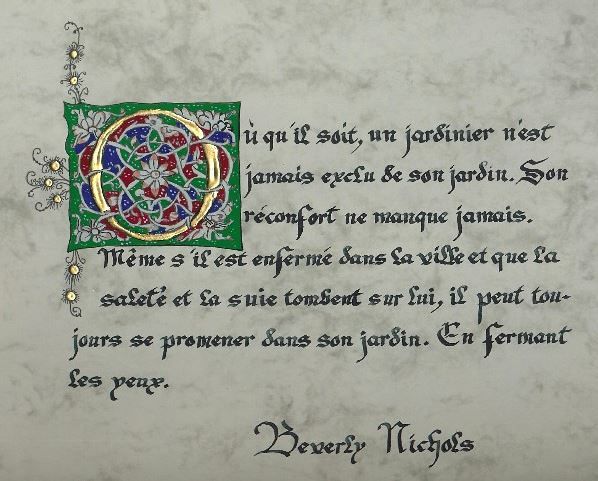 Où qu'il soit, un jardinier n'est
jamais exclu de son jardin. Son
réconfort ne manque jamais.
Même s'il est enfermé dans la ville et que la
saleté et la suie tombent sur lui, il peut tou-
jours se promener dans son jardin. En fermant
les yeux.
Beverly Nichols